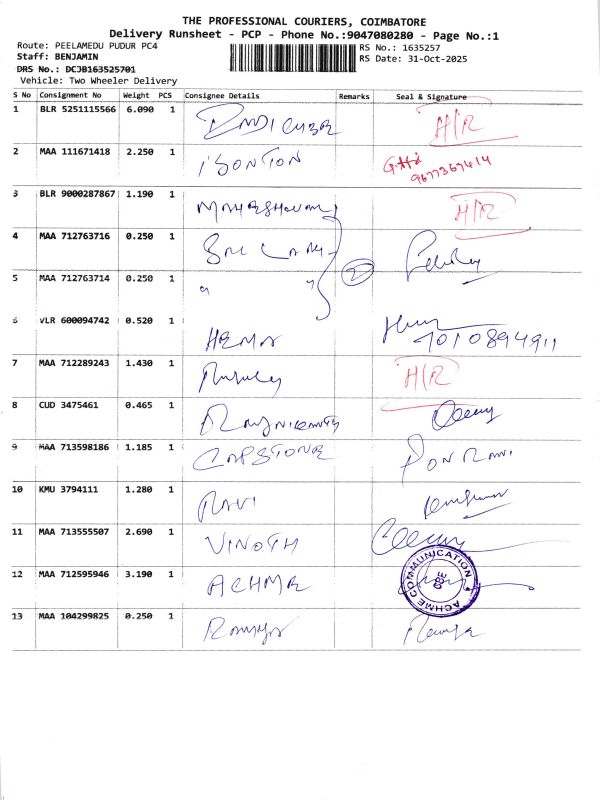 THE PROFESSIONAL COURIERS, COIMBATORE
Delivery Runsheet - PCP - Phone No.:9047080280 - Page No.:1
Route: PEELAMEDU PUDUR PC4
RS No.: 1635257
Staff: BENJAMIN
RS Date: 31-Oct-2025
DRS No.: DCJB163525701
Vehicle: Two Wheeler Delivery
S No Consignment No Weight PCS Consignee Details Remarks Seal & Signature
1 BLR 5251115566 6.090 1 H/R
2 MAA 111671418 2.250 1 9677367414
3 BLR 9000287867 1.190 1 H/R
4 MAA 712763716 0.250 1 2
5 MAA 712763714 0.250 1 "
6 VLR 600094742 0.520 1 HEMA 7010894911
7 MAA 712289243 1.430 1 H/R
8 CUD 3475461 0.465 1
9 MAA 713598186 1.185 1 CAPSTONE PONRANI
10 KMU 3794111 1.280 1 RAVI
11 MAA 713555507 2.690 1 VINOTH
12 MAA 712595946 3.190 1 ACHME ACHME COMMUNICATION CBE
13 MAA 104299825 0.250 1 Ramya